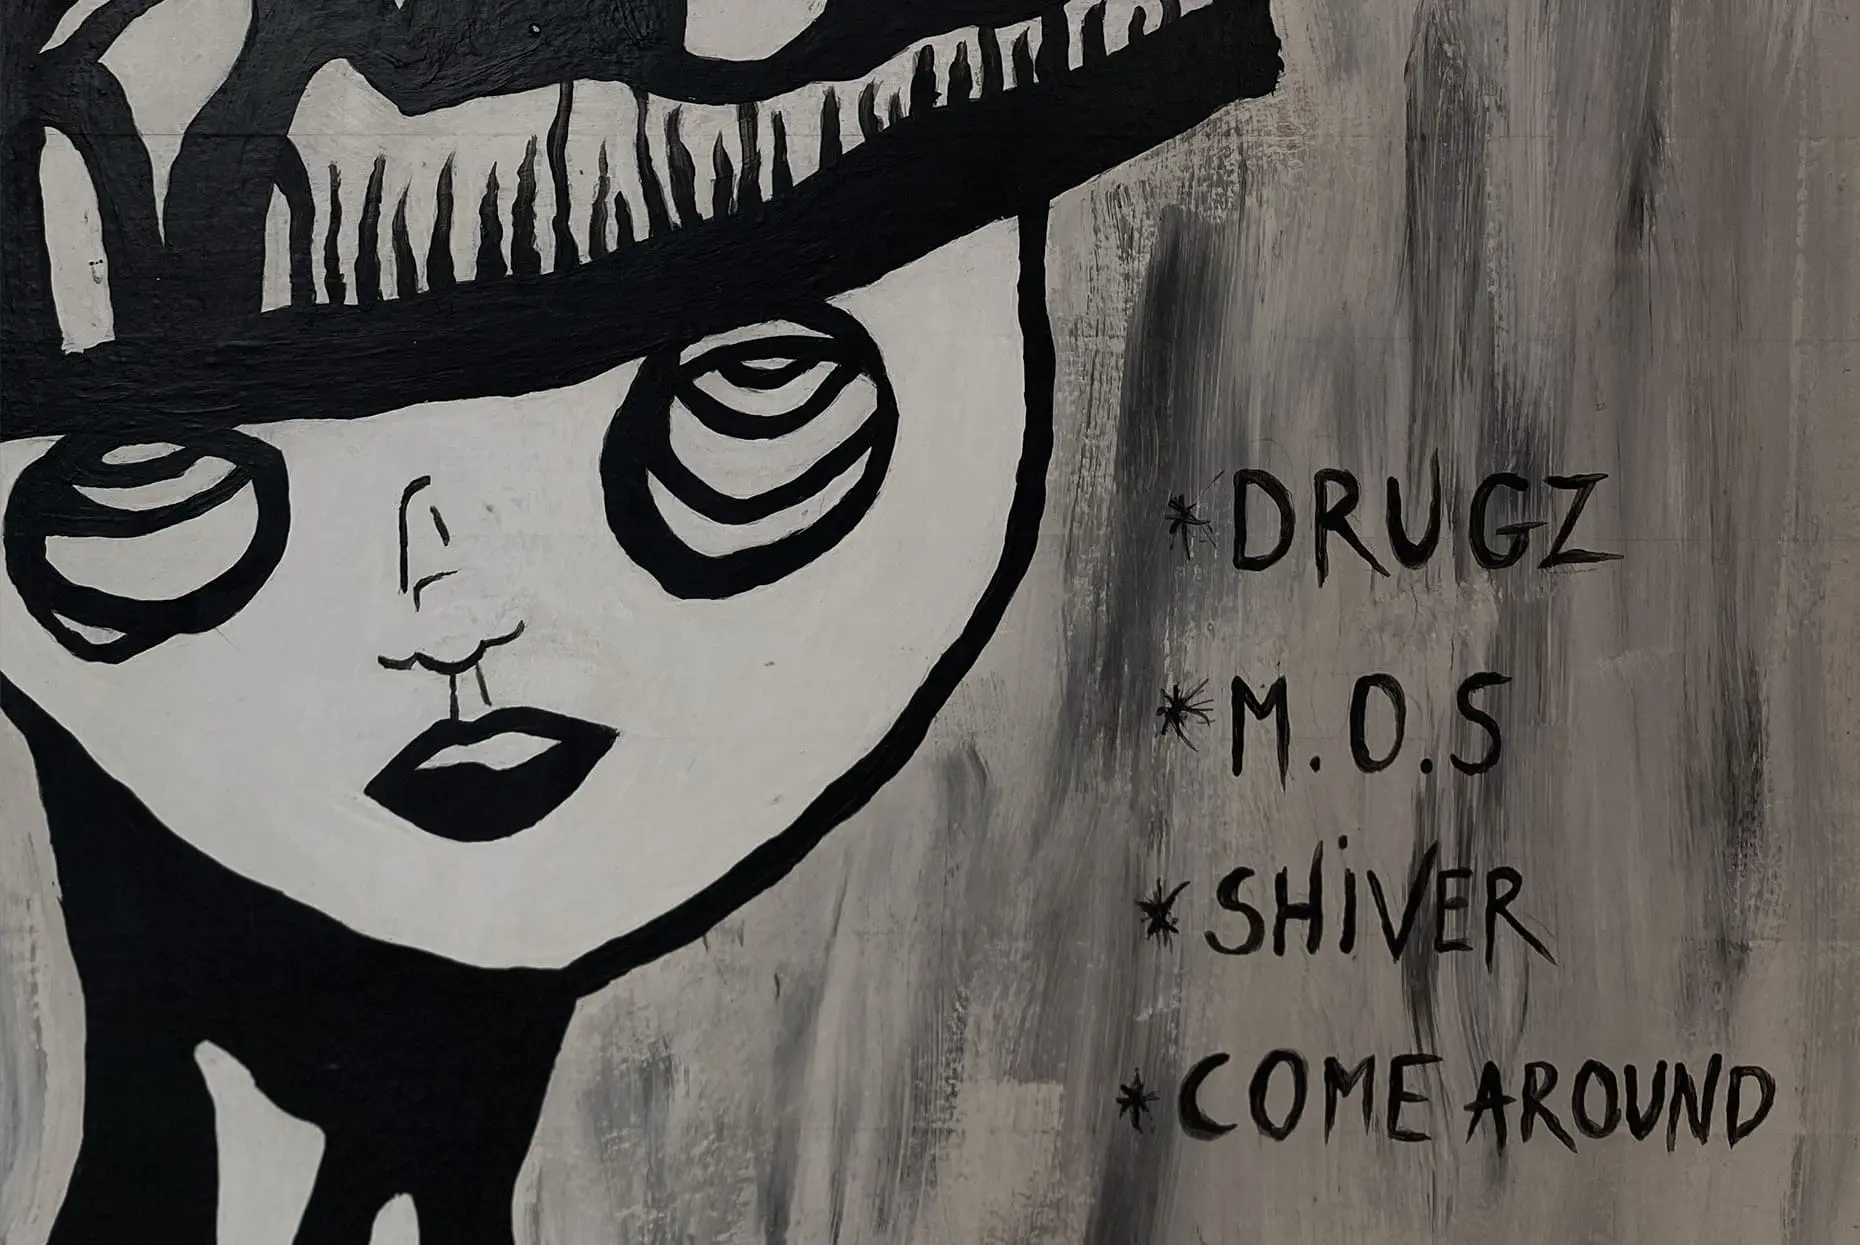 * DRUGZ
* M.O.S
* SHiVER
* COME AROUND